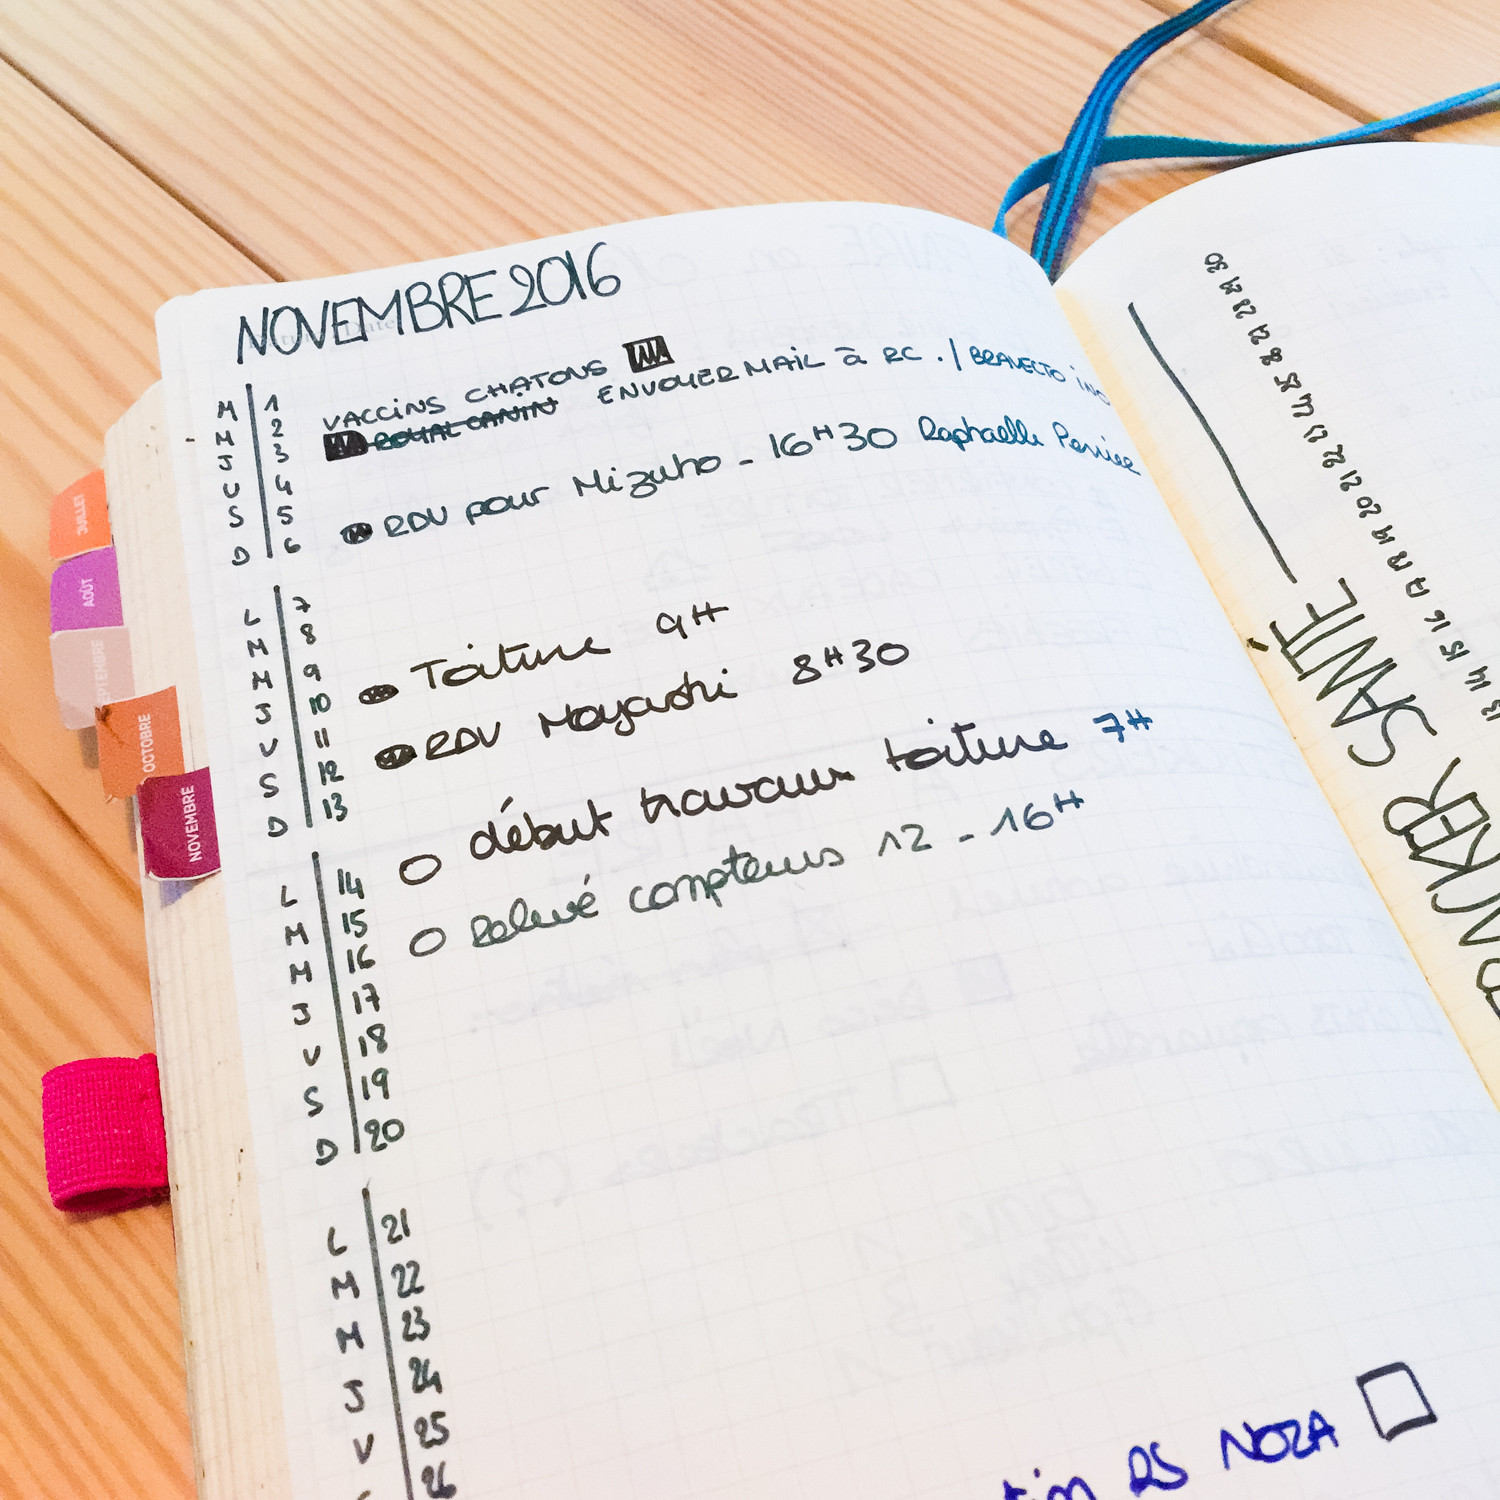 NOVEMBRE 2016
M 1 VACCINS CHATONS
M 2 ROYAL CANIN ENVOYER MAIL à RC . / BRAVECTO
J 3
V 4 RDV pour Mizuho - 16H30 Raphaelle
S 5
D 6
L 7
M 8
M 9
J 10 Toiture 9H
V 11
S 12 RDV Moyashi 8H30
D 13
L 14 début travaux toiture 7H
M 15
M 16 Relevé compteurs 12 - 16H
J 17
V 18
S 19
D 20
L 21
M 22
M 23
J 24
V 25
26
RS NOZA
JUILLET
AOÛT
SEPTEMBRE
OCTOBRE
NOVEMBRE
TRACKER SANTÉ
13 14 15 16 17 18 19 20 21 22 23 24 25 26 27 28 29 30